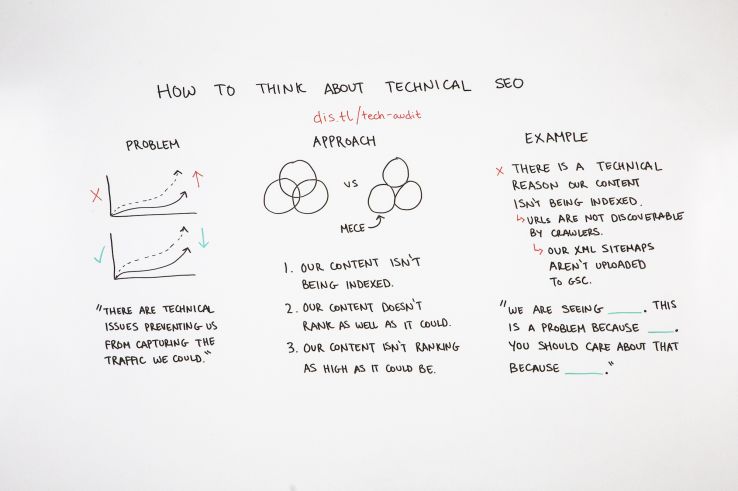 HOW TO THINK ABOUT TECHNICAL SEO
dis.tl/tech-audit
PROBLEM
X
✓
"THERE ARE TECHNICAL
ISSUES PREVENTING US
FROM CAPTURING THE
TRAFFIC WE COULD."
APPROACH
VS
MECE
1. OUR CONTENT ISN'T
BEING INDEXED.
2. OUR CONTENT DOESN'T
RANK AS WELL AS IT COULD.
3. OUR CONTENT ISN'T RANKING
AS HIGH AS IT COULD BE.
EXAMPLE
X THERE IS A TECHNICAL
REASON OUR CONTENT
ISN'T BEING INDEXED.
↳ URLS ARE NOT DISCOVERABLE
BY CRAWLERS.
↳ OUR XML SITEMAPS
AREN'T UPLOADED
TO GSC.
"WE ARE SEEING ____. THIS
IS A PROBLEM BECAUSE ____.
YOU SHOULD CARE ABOUT THAT
BECAUSE ____."